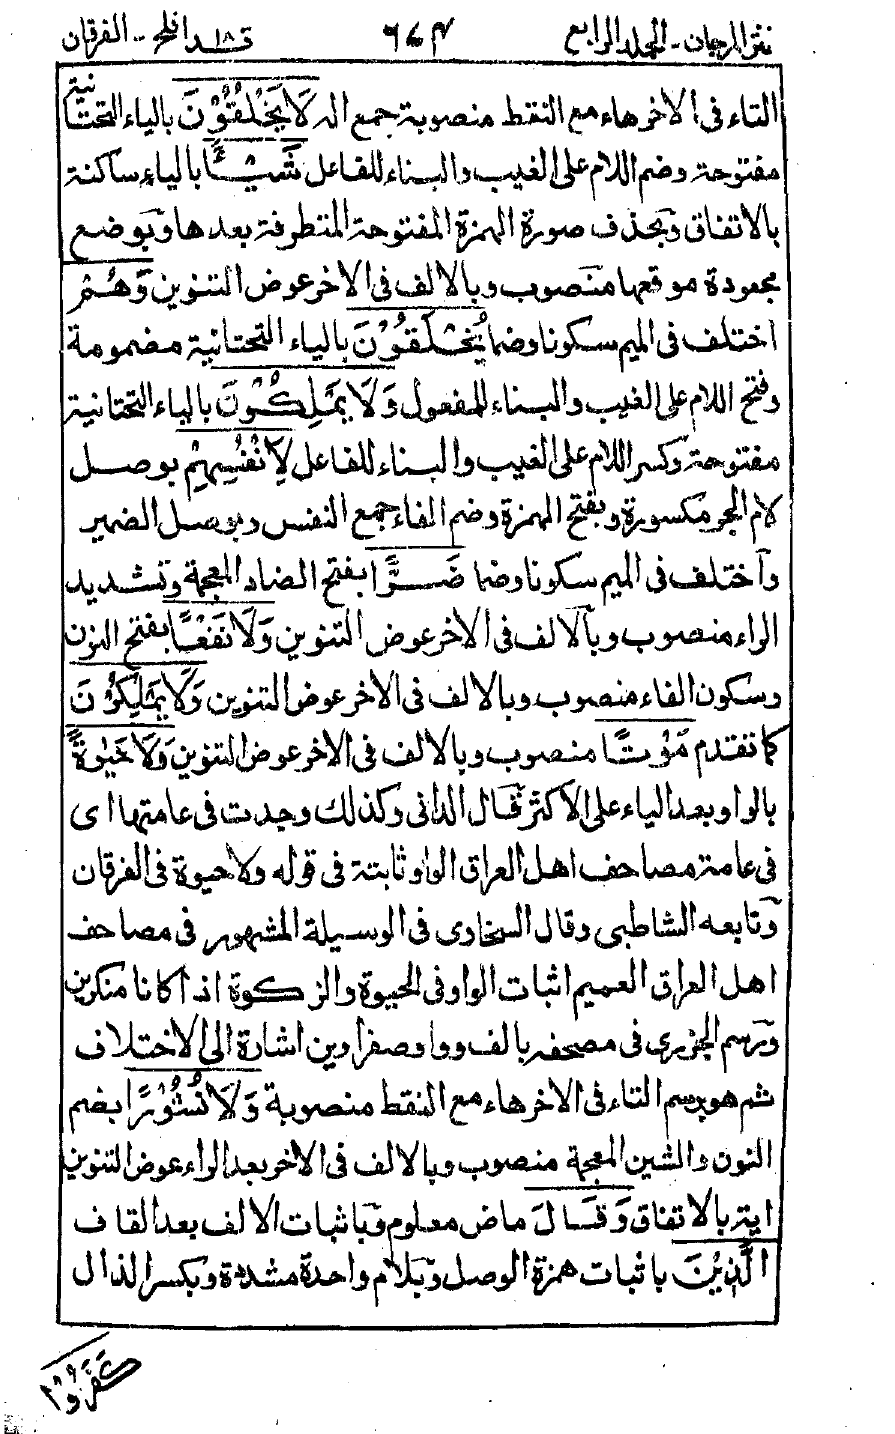 نثر المرجان - المجلد الرابع ٦٧٤ قد افلح - الفرقان
التاء فى الاخرهاء مع النقط منصوبة جمع اله لَا يَخْلُقُوْنَ بالياء التحتانية
مفتوحة وضم اللام على الغيب والبناء للفاعل شَيْئًا بالياء ساكنة
بالاتفاق وبحذف صورة الهمزة المفتوحة المتطرفة بعدها وبوضع
مجعودة موقعها منصوب وبالالف فى الاخرعوض التنوين وَّهُمْ
اختلف فى الميم سكونا وضما يُخْلَقُوْنَ بالياء التحتانية مضمومة
وفتح اللام على الغيب والبناء للمفعول وَلَا يَمْلِكُوْنَ بالياء التحتانية
مفتوحة وكسر اللام على الغيب والبناء للفاعل لِاَنْفُسِهِمْ بوصل
لام الجر مكسورة وبفتح الهمزة وضم الفاء جمع النفس وبوصل الضمير
واختلف فى الميم سكونا وضما ضَرًّا بفتح الضاد المعجمة وتشديد
الراء منصوب وبالالف فى الاخرعوض التنوين وَلَا نَفْعًا بفتح النون
وسكون الفاء منصوب وبالالف فى الاخرعوض التنوين وَلَا يَمْلِكُوْنَ
كما تقدم مَوْتًا منصوب وبالالف فى الاخرعوض التنوين وَلَا حَيٰوةً
بالواو بعد الياء على الاكثر قال الدانى وكذلك وجدت فى عامتها اى
فى عامة مصاحف اهل العراق الواو ثابتة فى قوله ولا حيوة فى الفرقان
وتابعه الشاطبى وقال السخاوى فى الوسيلة المشهور فى مصاحف
اهل العراق العميم اثبات الواو فى الحيوة والزكوة اذا كانا منكرين
ورسم الجزرى فى مصحفه بالف وواو صفراوين اشارة الى الاختلاف
ثم هو برسم التاء فى الاخرهاء مع النقط منصوبة وَلَا نُشُوْرًا بضم
النون والشين المعجمة منصوب وبالالف فى الاخر بعد الراء عوض التنوين
اية بالاتفاق وَقَالَ ماض معلوم وباثبات الالف بعد القاف
الَّذِيْنَ باثبات همزة الوصل وبلام واحدة مشددة وبكسر الذال
كَفَرُوْا